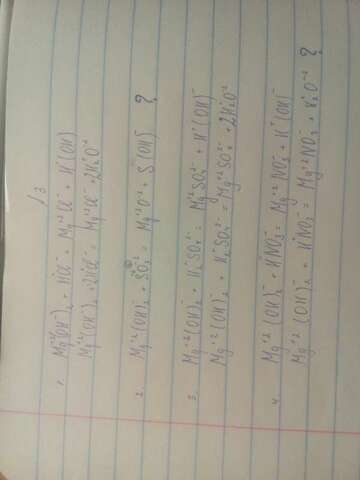 13
1. Mg⁺²(OH)₂⁻ + H⁺Cl⁻ = Mg⁺²Cl⁻ + H⁺(OH)
Mg⁺²(OH)₂⁻ + 2H⁺Cl⁻ = Mg⁺²Cl⁻ + 2H₂⁺O⁻²
2. Mg⁺²(OH)₂⁻ + SO₃⁻² = Mg⁺²O⁻² + S(OH)⁻ ?
3. Mg⁺²(OH)₂⁻ + H₂⁺SO₄⁻ = Mg⁺²SO₄²⁻ + H⁺(OH)⁻
Mg⁺²(OH)₂⁻ + H₂⁺SO₄⁻² = Mg⁺²SO₄²⁻ + 2H₂⁺O⁻²
4. Mg⁺²(OH)₂⁻ + H⁺NO₃⁻ = Mg⁺²NO₃⁻ + H⁺(OH)⁻
Mg⁺²(OH)₂⁻ + H⁺NO₃⁻ = Mg⁺²NO₃⁻ + H₂⁺O⁻² ?